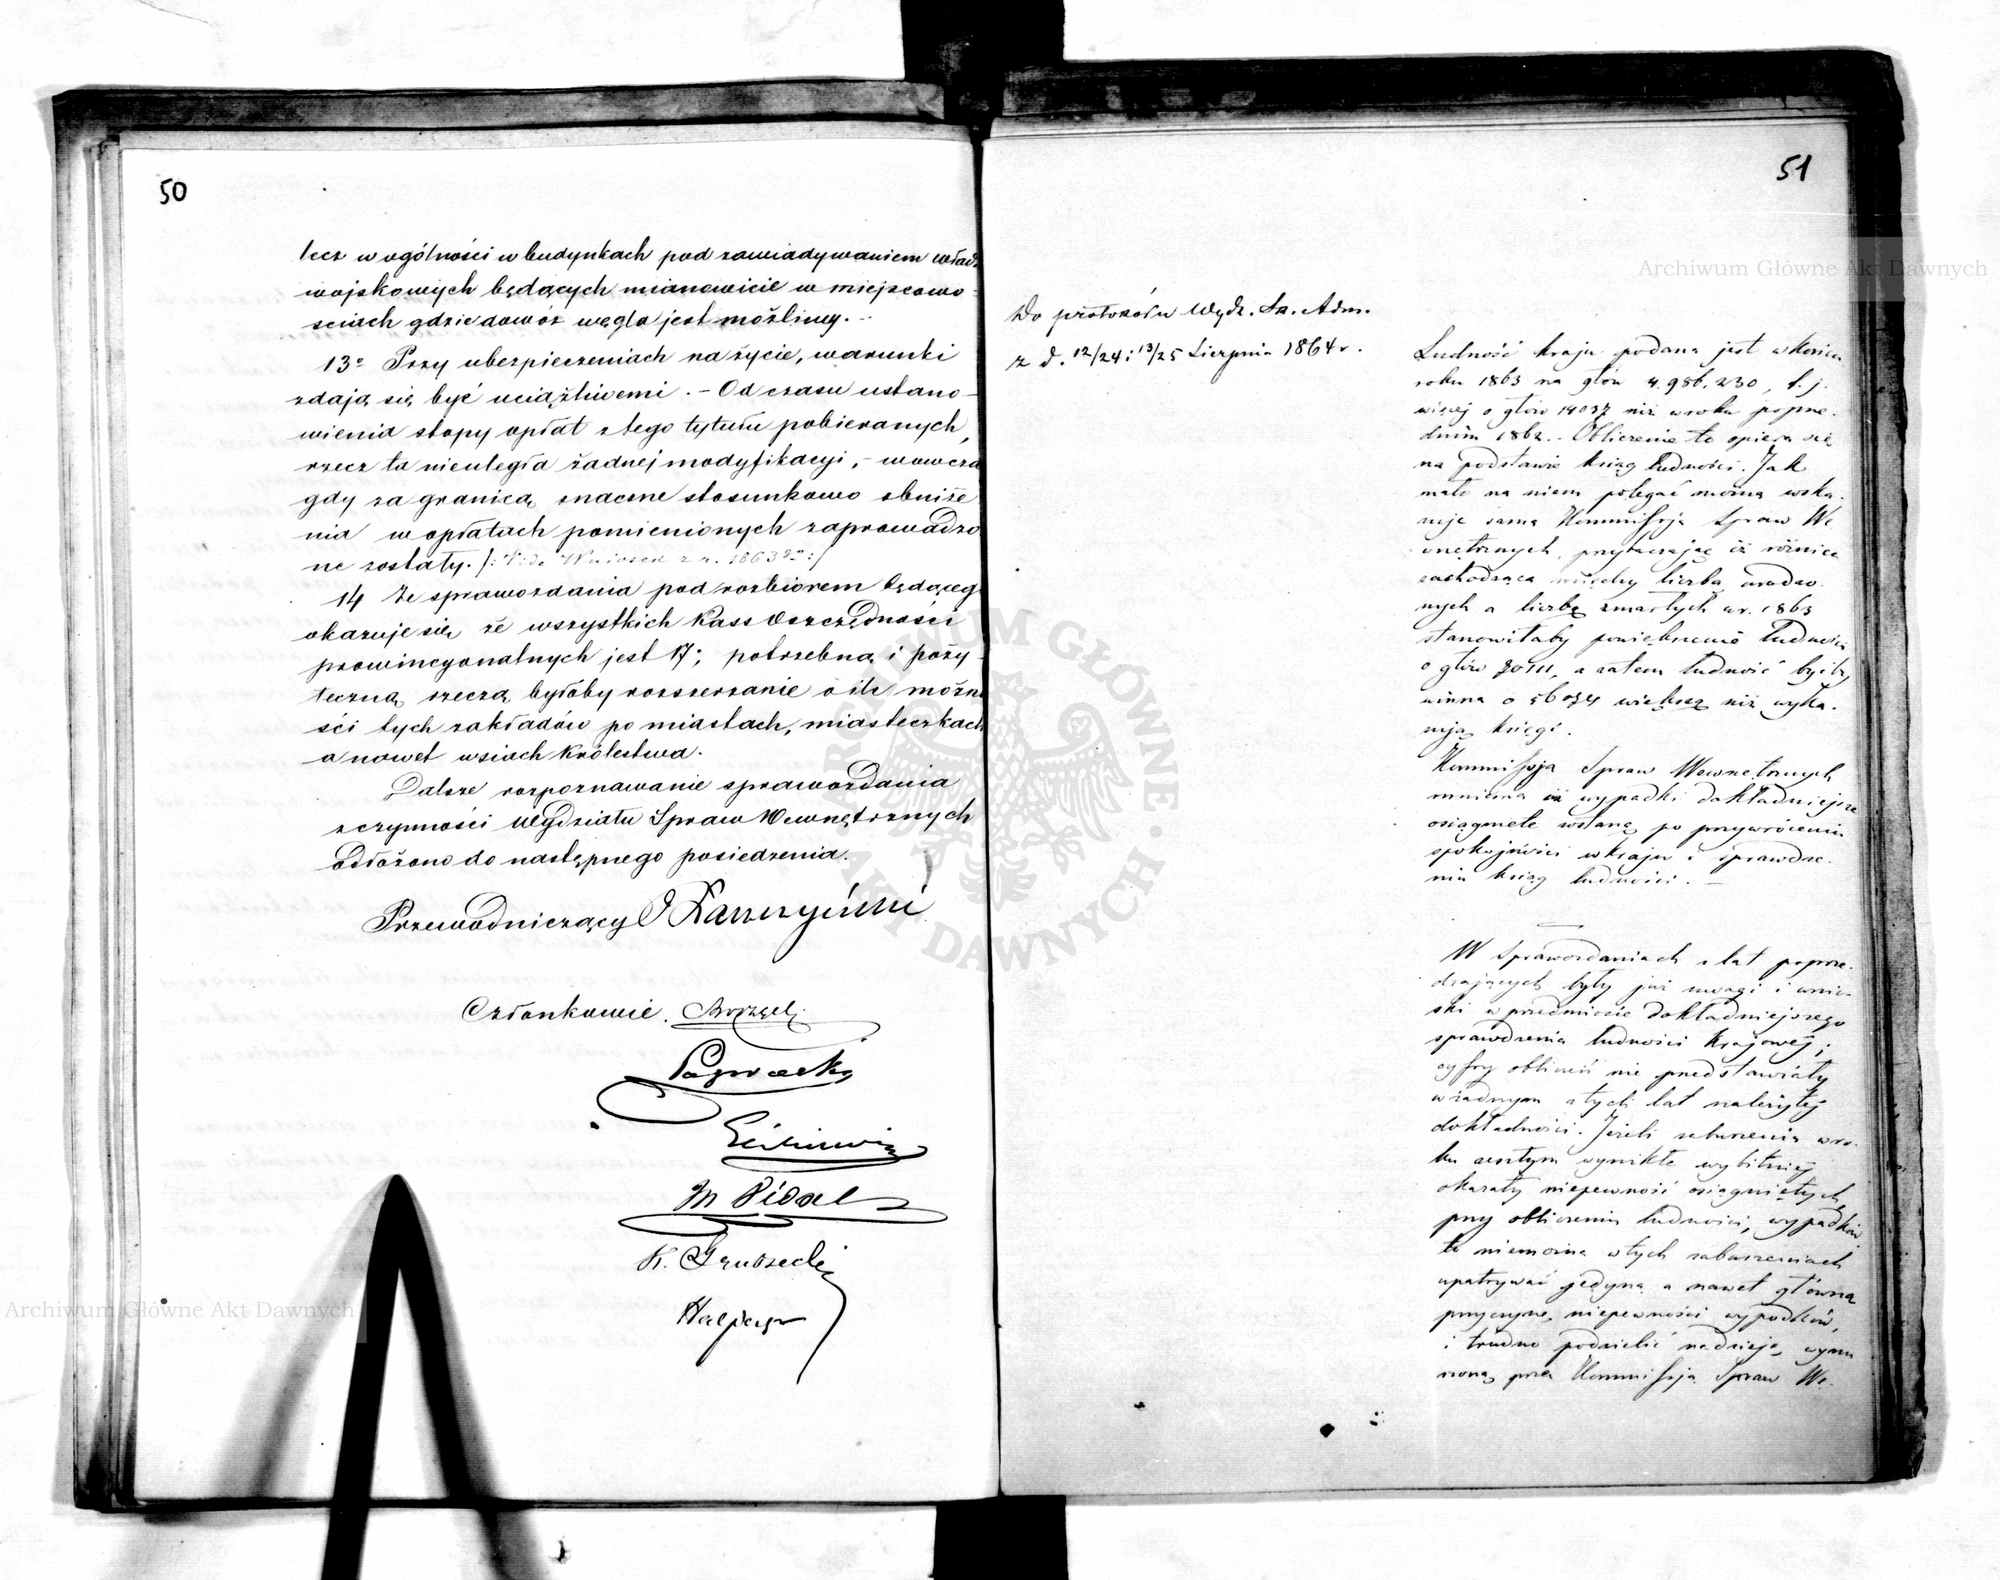 50
lecz w ogólności w budynkach pod zawiadywaniem władz
wojskowych będących mianowicie w miejscowo-
sciach gdzie dowóz węgla jest możliwy.
13º Przy ubezpieczeniach na życie, warunki
zdają się być uciążliwemi. – Od czasu ustano-
wienia stopy opłat z tego tytułu pobieranych,
rzecz ta nieuległa żadnej modyfikacyi, – wowcza
gdy za granicą znaczne stosunkowo zniże
nia w opłatach pomienionych zaprowadzo
ne zostały. /: Vide Wniosek z r. 1863 :/
14 Ze sprawozdania pod rozbiorem będąceg
okazuje się, że wszystkich Kass Oszczędności
prowincyonalnych jest 17; potrzebną i poży-
teczną rzeczą byłoby rozszerzanie o ile możn
ści tych zakładów po miastach, miasteczkach
a nawet wsiach Królestwa.
Dalsze rozpoznawanie sprawozdania
z czynności Wydziału Spraw Wewnętrznych
odłożono do następnego posiedzenia.
Przewodniczący
Członkowie.
K.
Halpert
51
Do protokółu Wydz. Sk. Adm.
z d. 12/24 i 13/25 Sierpnia 1864 r.
Ludność kraju podana jest w końcu
roku 1863 na głów 4.986.230, t. j.
więcej o głów 14037 niż w roku poprze-
dnim 1862. Obliczenie to opiera się
na podstawie ksiąg ludności. Jak
mało na niem polegać można wska-
zuje sama Kommissja Spraw We
wnętrznych, przytaczając iż różnica
zachodząca między liczbą urodzo-
nych a liczbą zmarłych w r. 1863
stanowiłaby powiększenie ludności
o głów 70111, a zatem ludność byćby
winna o 56074 większą niż wyka-
zują księgi.
Kommissja Spraw Wewnętrznych
mniema iż wypadki dokładniejsze
osiągnięte zostaną po przywróceniu
spokojności w kraju i sprawdze-
niu ksiąg ludności. –
W Sprawozdaniach z lat poprze-
dzających były już uwagi i wnio-
ski w przedmiocie dokładniejszego
sprawdzenia ludności Krajowej;
cyfry obliczeń nie przedstawiały
w żadnym z tych lat należytej
dokładności. Jeżeli zaburzenia w ro-
ku zeszłym wynikłe wybitniej
okazały niepewność osiągniętych
przy obliczeniu ludności, wypadków
to niemożna w tych zaburzeniach
upatrywać jedyną a nawet główną
przyczynę niepewności wypadków,
i trudno podzielić nadzieję, wynu
rzoną przez Kommissją Spraw We-
Archiwum Główne Akt Dawnych
Archiwum Główne Akt Dawnych
ARCHIWUM GŁÓWNE AKT DAWNYCH